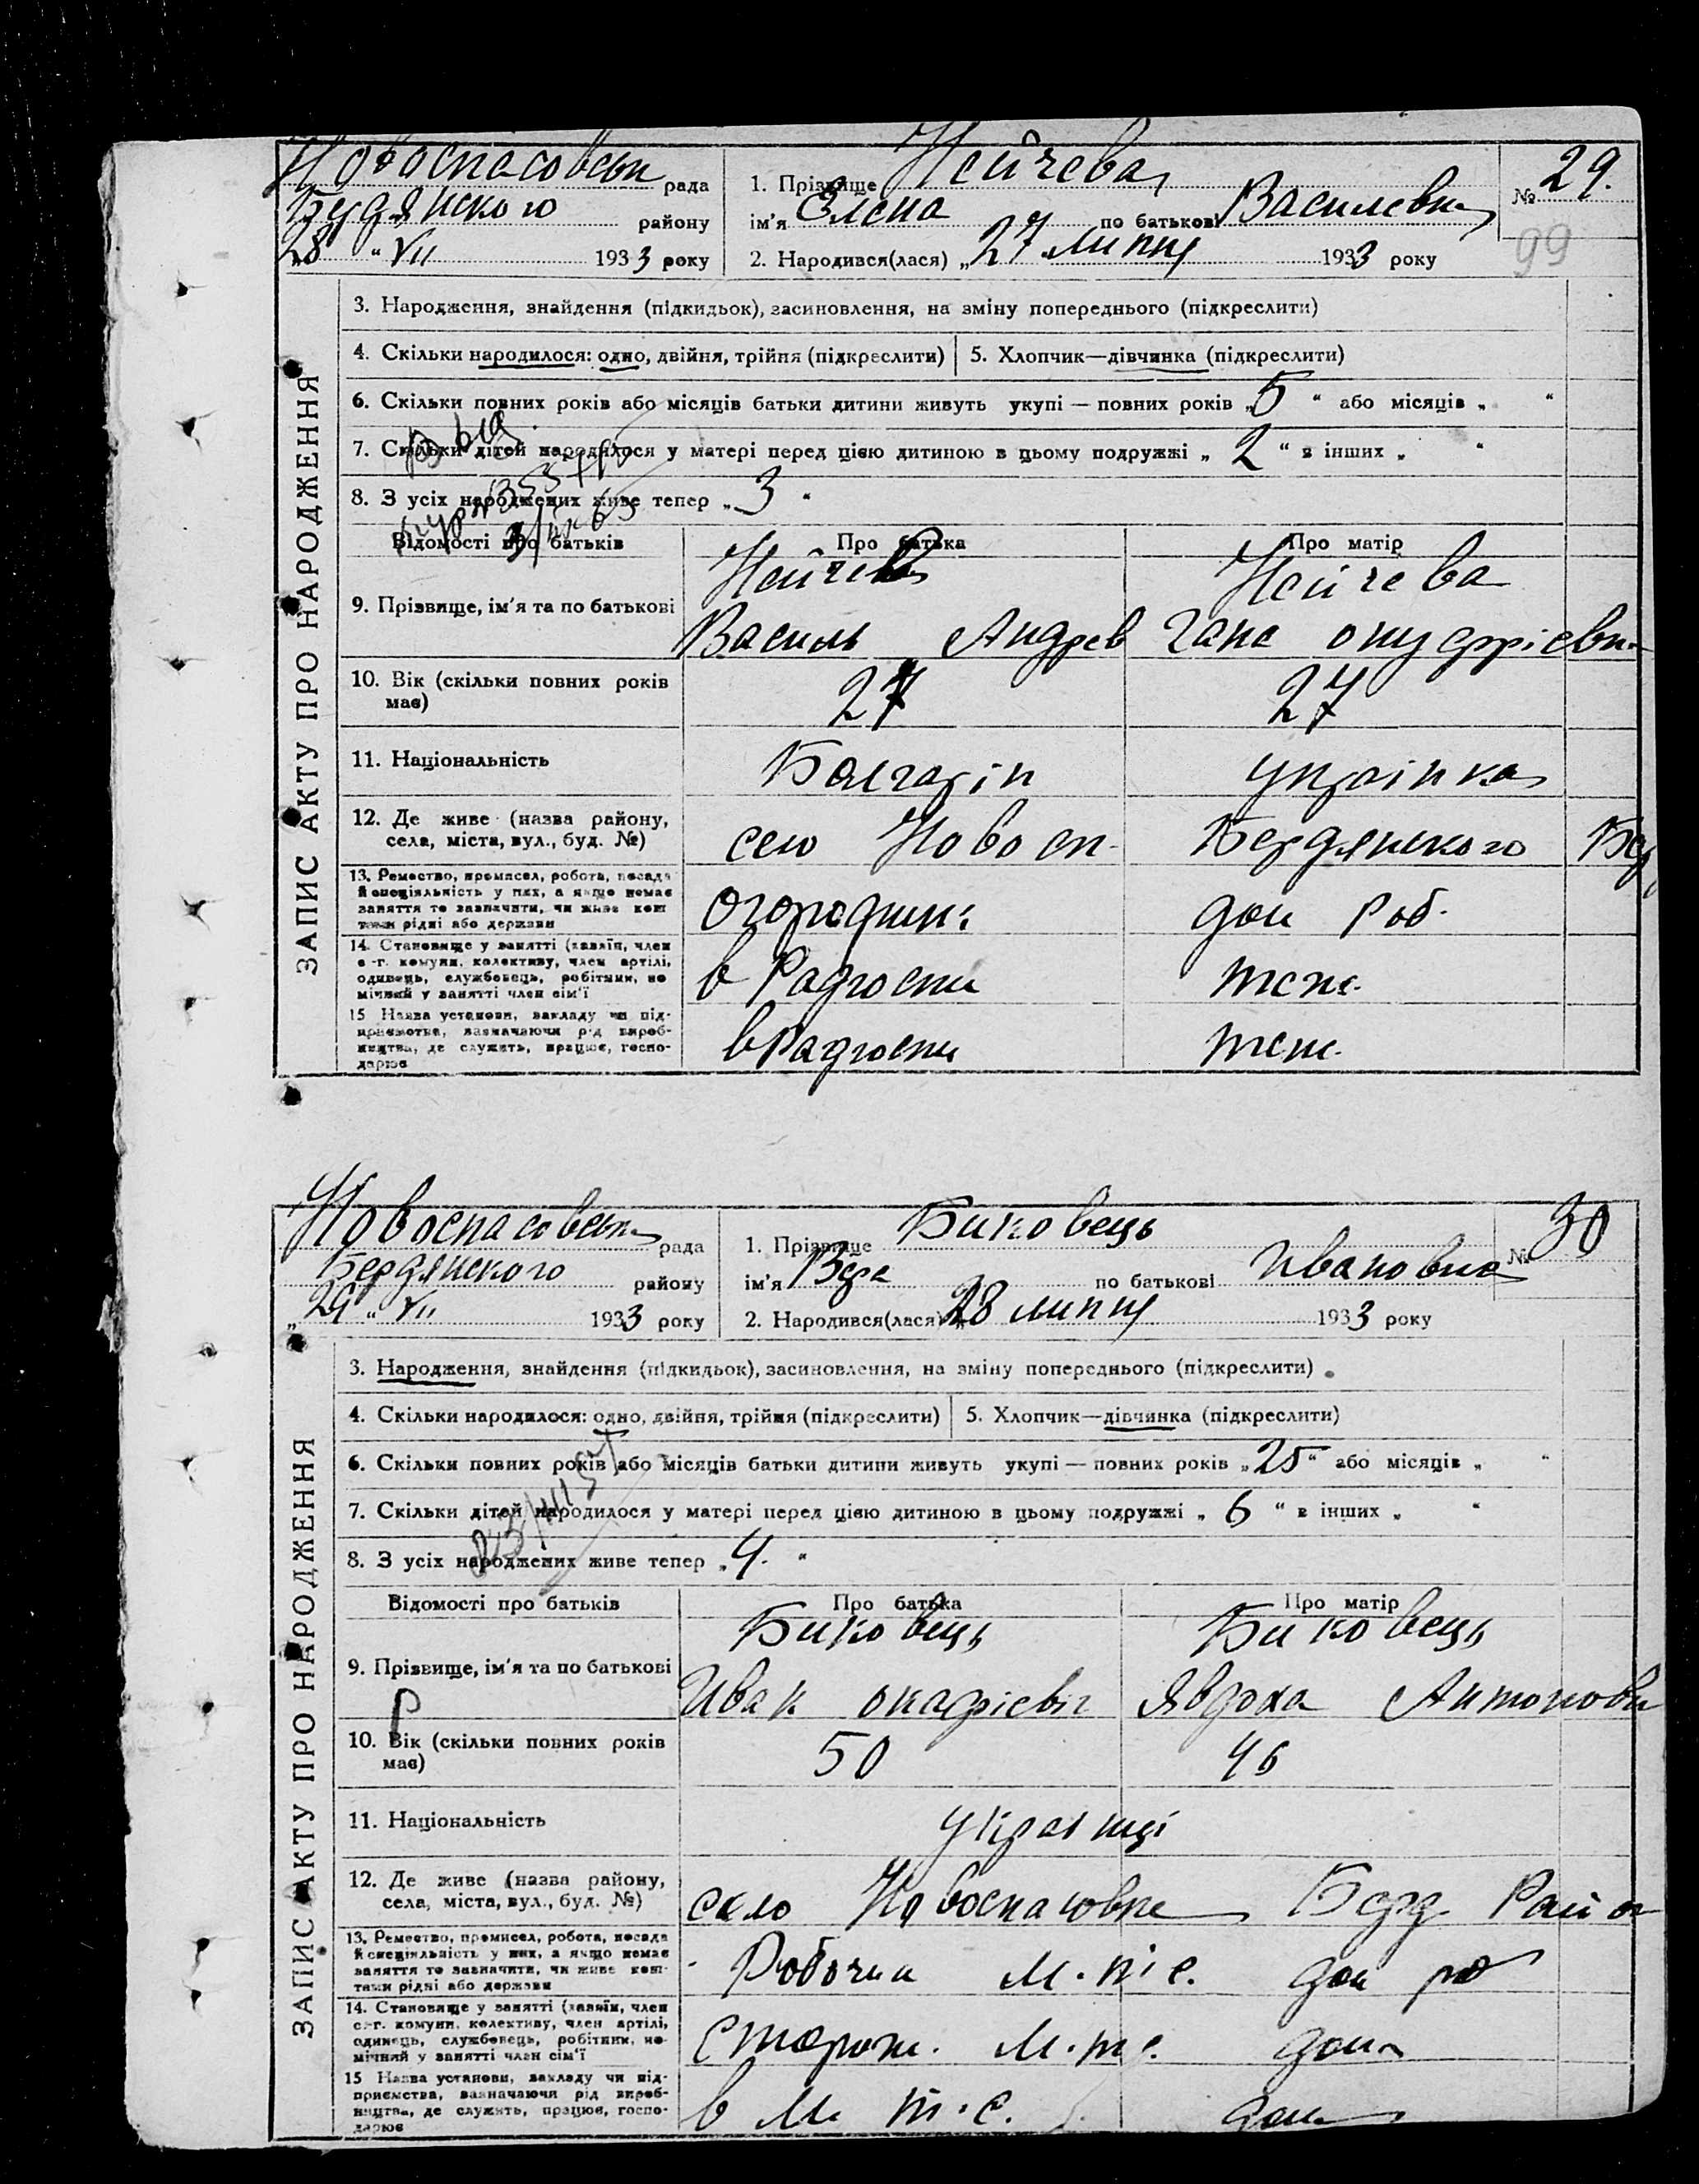 Новоспасовськ рада
Бердянского району
28 " VII 1933 року
1. Прізвище Нейчева
ім'я Элена по батькові Василевна
2. Народився(лася) „27" липня 1933 року
№ 29.
99
ЗАПИС АКТУ ПРО НАРОДЖЕННЯ
3. Народження, знайдення (підкидьок), засиновлення, на зміну попереднього (підкреслити)
4. Скільки народилося: одно, двійня, трійня (підкреслити) 5. Хлопчик—дівчинка (підкреслити)
6. Скільки повних років або місяців батьки дитини живуть укупі — повних років „5" або місяців „ "
7. Скільки дітей народилося у матері перед цією дитиною в цьому подружжі „2" в інших „ "
8. З усіх народжених живе тепер „3"
Відомості про батьків Про батька Про матір
9. Прізвище, ім'я та по батькові Нейчев Нейчева
Василь Андрев Гана онуфрієвн
10. Вік (скільки повних років має) 27 27
11. Національність Болгарін українка
12. Де живе (назва району, села, міста, вул., буд. №) село Новосп. Бердянского Бер
13. Ремество, промисел, робота, посада й спеціяльність у них, а якщо немає заняття то зазначити, чи живе коштами рідні або держави
дом роб.
14. Становище у занятті (хазяїн, член с.-г. комуни, колективу, член артілі, одинець, службовець, робітник, помічний у занятті член сім'ї
в Радгоспи
15 Назва установи, закладу чи підприємства, зазначаючи рід виробництва, де служить, працює, господарює
в Радгоспи
Новоспасовськ рада
Бердянского району
„29" VII 1933 року
1. Прізвище Биковець
ім'я Вера по батькові Ивановна
2. Народився(лася) „28 липня 1933 року
№ 30
ЗАПИС АКТУ ПРО НАРОДЖЕННЯ
3. Народження, знайдення (підкидьок), засиновлення, на зміну попереднього (підкреслити)
4. Скільки народилося: одно, двійня, трійня (підкреслити) 5. Хлопчик—дівчинка (підкреслити)
6. Скільки повних років або місяців батьки дитини живуть укупі — повних років „25" або місяців „ "
7. Скільки дітей народилося у матері перед цією дитиною в цьому подружжі „6" в інших „ "
8. З усіх народжених живе тепер „4."
Відомості про батьків Про батька Про матір
9. Прізвище, ім'я та по батькові Биковець Биковець
Иван Явдоха Антоновн
Р
10. Вік (скільки повних років має) 50 46
11. Національність українці
12. Де живе (назва району, села, міста, вул., буд. №) село Новоспасовке Берд. Район
13. Ремество, промисел, робота, посада й спеціяльність у них, а якщо немає заняття то зазначити, чи живе коштами рідні або держави
Робочий М.т.с. дом ро
14. Становище у занятті (хазяїн, член с.-г. комуни, колективу, член артілі, одинець, службовець, робітник, помічний у занятті член сім'ї
Сторож. М.т.с. дом
15 Назва установи, закладу чи підприємства, зазначаючи рід виробництва, де служить, працює, господарює
в М.т.с. дом